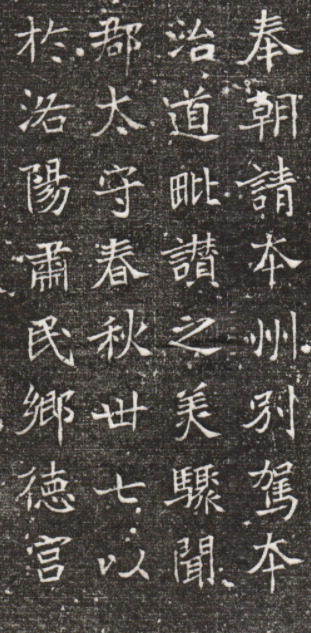 奉朝請本州別駕本
治道毗讃之美驟聞
郡太守春秋卅七以
於洛陽肅民鄉德宫